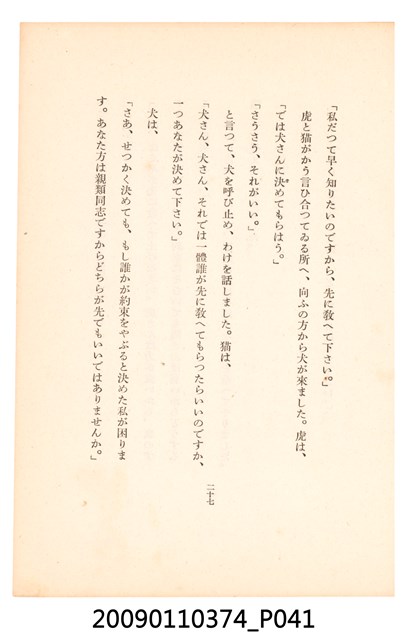 「私だつて早く知りたいのですから、先に敎へて下さい。」
虎と猫がかう言ひ合つてゐる所へ、向ふの方から犬が來ました。虎は、
「では犬さんに決めてもらはう。」
「さうさう、それがいい。」
と言つて、犬を呼び止め、わけを話しました。猫は、
「犬さん、犬さん、それでは一體誰が先に敎へてもらつたらいいのですか、
一つあなたが決めて下さい。」
犬は、
「さあ、せつかく決めても、もし誰かが約束をやぶると決めた私が困りま
す。あなた方は親類同志ですからどちらが先でもいいではありませんか。」
二十七
20090110374_P041